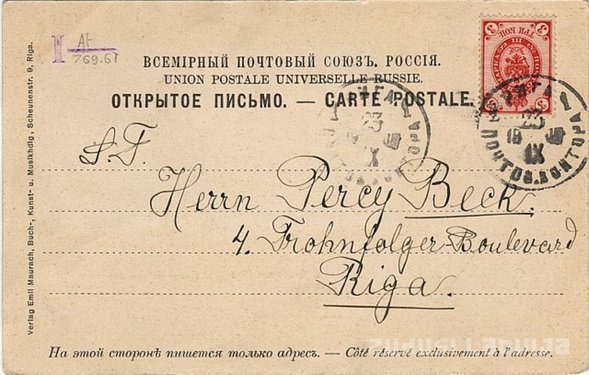 AL
769.61
ВСЕМІРНЫЙ ПОЧТОВЫЙ СОЮЗЪ. РОССІЯ.
UNION POSTALE UNIVERSELLE RUSSIE.
ОТКРЫТОЕ ПИСЬМО. — CARTE POSTALE.
РИГА 1
23
IX
ПОЧТОВ. КОНТОРА
S. T.
Herrn Percy Beck.
4. Trohnfolger-Boulevard
Riga.
На этой сторонѣ пишется только адресъ. — Côté réservé exclusivement à l'adresse.
Verlag Emil Maurach, Buch-, Kunst- u. Musikhdlg, Scheunenstr. 9, Riga.